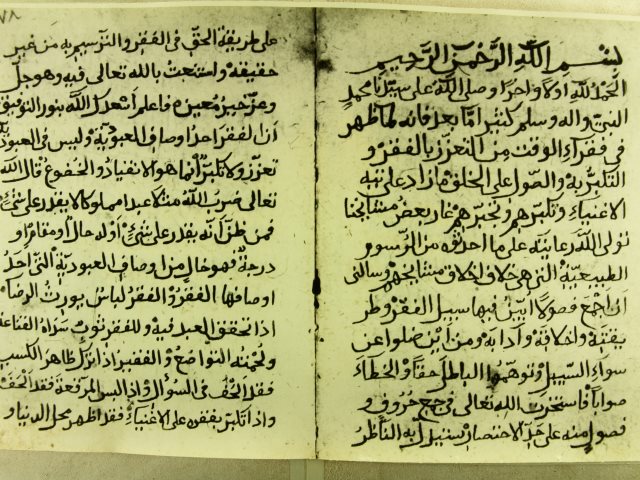 بسم الله الرحمن الرحيم
الحمد لله اولا واخرا وصلى الله على سيدنا محمد
النبي واله وسلم كثيرا اما بعد فانه لما ظهر
في فقراء الوقت من التعزز بالفقر و
التكبر به والصول على الخلق ما زاد على تيه
الاغنياء وتكبرهم وتجبرهم غار بعض مشايخنا
تولى الله رعايته على ما احدثوه من الرسوم
الطبيعية التي هي خلاف اخلاق مشايخهم وسالني
ان اجمع فصولا ابين فيها سبيل الفقر وطر
يقته واخلاقه وادابه ومن اين ضلوا عن
سواء السبيل وتوهموا الباطل حقا والخطاء
صوابا فاستخرت الله تعالى في جمع حروف و
فصول منه على حد الاختصار يستدل به الناظر
٧٨
على طريقة الحق في الفقر والترسيم به من غير
حقيقة واستعنت بالله تعالى فيه وهو جل
وعز خير معين فاعلم اسعدك الله بنور التوفيق
ان الفقر احد اوصاف العبودية وليس في العبودية
تعزز ولا تكبر انما هو الانقياد والخضوع قال الله
تعالى ضرب الله مثلا عبدا مملوكا لا يقدر على شيء
فمن ظن انه يقدر على شيء اوله حال او مقام او
درجة فهو خال من اوصاف العبودية التي احد
اوصافها الفقر والفقر لباس يورث الرضا
اذا تحقق العبد فيه وللفقر ثوب سداه القناعة
ولحمته التواضع والفقير اذا ترك ظاهر الكسب
فقد الحف في السوال واذا لبس المرقعة فقد الحف
واذا تكبر بفقره على الاغنياء فقد اظهر محل الدنيا و